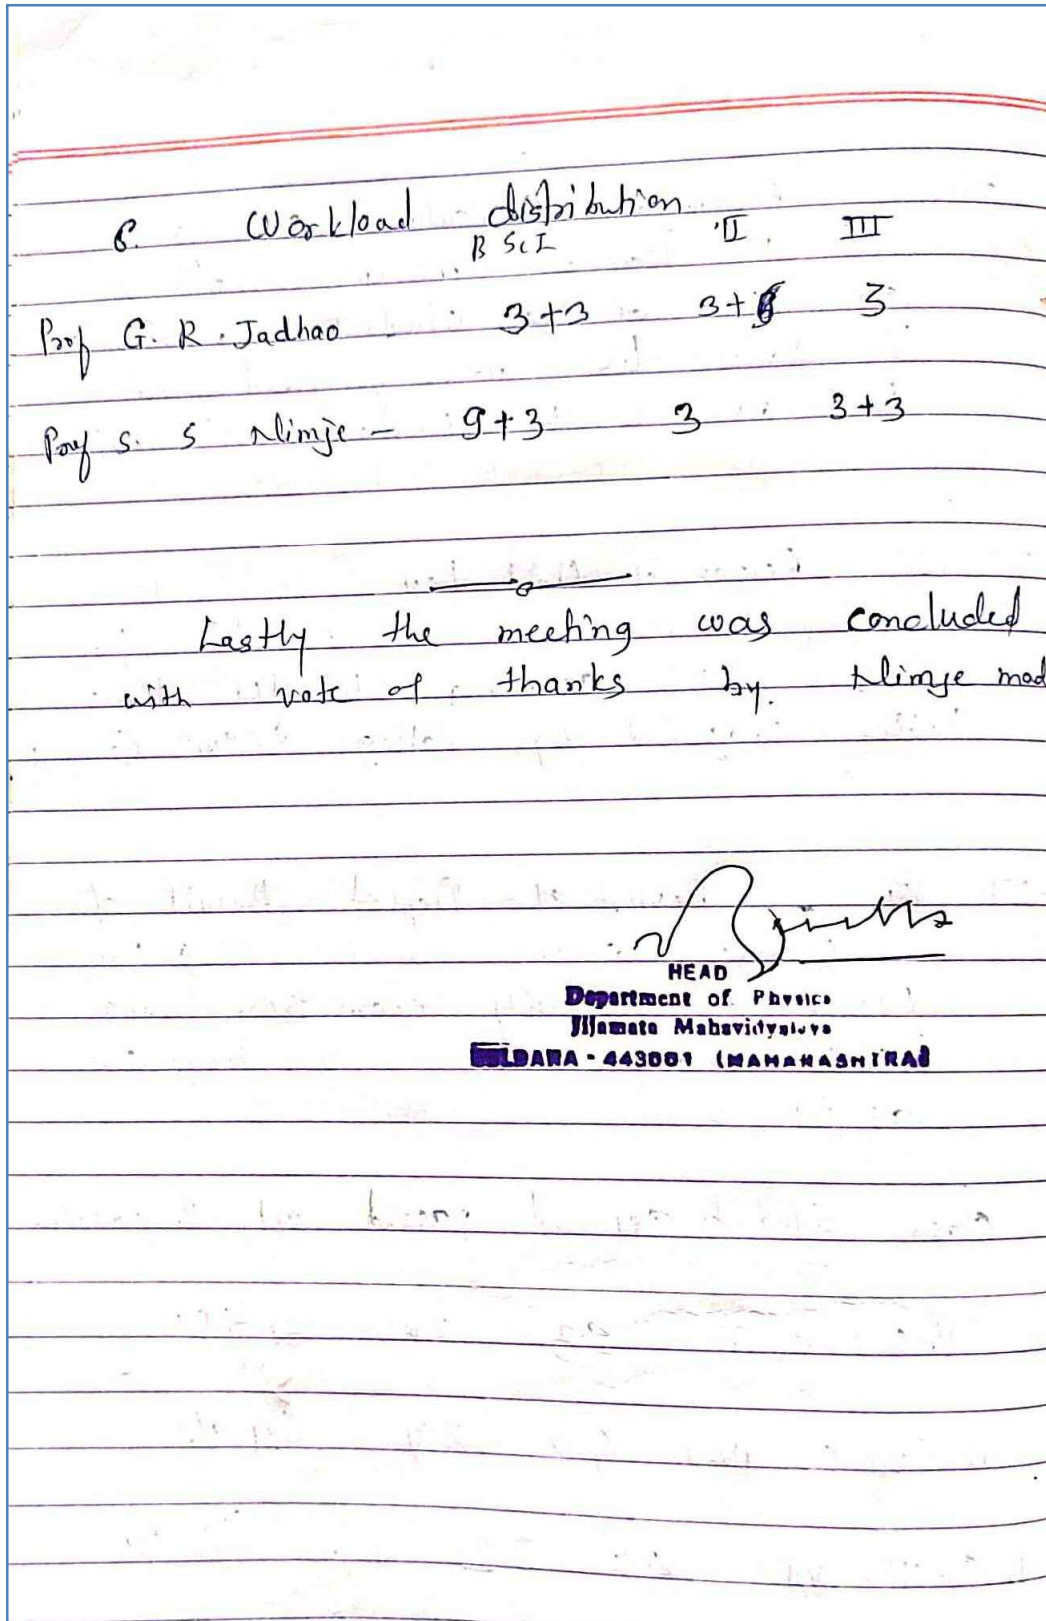 6. Workload distribution
B Sc I II III
Prof G. R. Jadhao 3+3 3+ 3
Prof S. S Nimje - 9+3 3 3+3
Lastly the meeting was concluded
with vote of thanks by. Nimje mad
HEAD
Department of Physics
Jijamata Mahavidyalaya
BULDANA - 443001 (MAHARASHTRA)